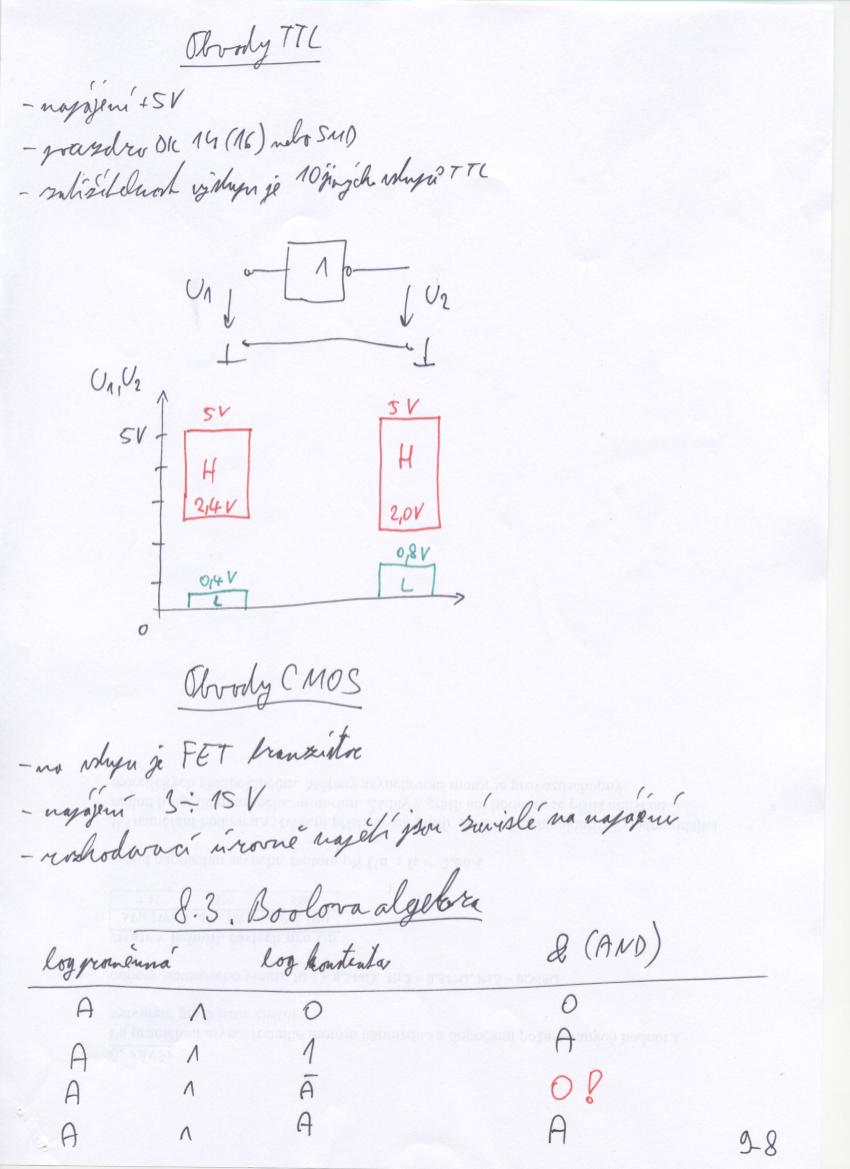 Obvody TTL
- napájení +5V
- pouzdro DIL 14 (16) nebo SMD
- zatížitelnost výstupu je 10 jiných vstupů TTL
1
U1 U2
U1,U2
5V 5V
5V
H H
2,4V 2,0V
0,4V 0,8V
L L
0
Obvody CMOS
- na vstupu je FET tranzistor
- napájení 3÷15 V
- rozhodovací úrovně napětí jsou závislé na napájení
8.3. Boolova algebra
log proměnná log konstanta & (AND)
A ∧ 0 0
A ∧ 1 A
A ∧ Ā 0!
A ∧ A A
9-8